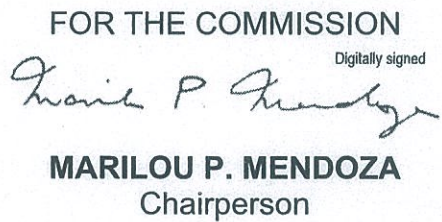 FOR THE COMMISSION
Digitally signed
Marilou P. Mendoza
MARILOU P. MENDOZA
Chairperson